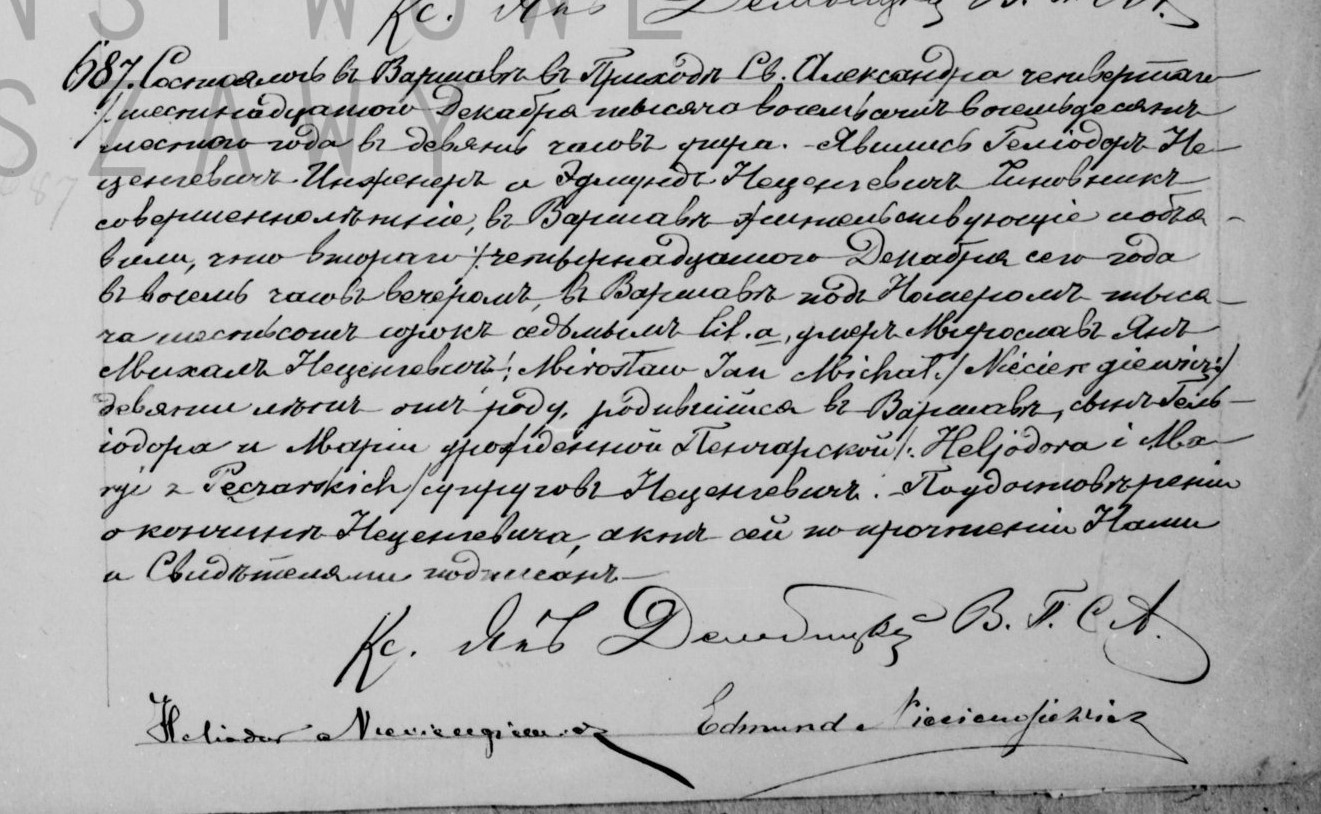 Кс. Янъ Дембицкій В. П. С. А.
NSTWOWE
SZAWY
687. Состоялось въ Варшавѣ въ Приходѣ Св. Александра четвертаго
/шестнадцатого Декабря тысяча восемьсотъ восемьдесятъ
шестого года въ девять часовъ утра. - Явились Геліодоръ Не-
ценгевичъ Инженеръ и Эдмундъ Неценгевичъ Чиновникъ
совершеннолѣтніе, въ Варшавѣ жительствующіе и объя-
вили, что втораго /четырнадцатого Декабря сего года
въ восемь часовъ вечеромъ, въ Варшавѣ подъ Номеромъ тыся-
ча шестьсотъ сорокъ седьмымъ lit. a, умеръ Мирославъ Янъ
Михалъ Неценгевичъ /: Mirosław Jan Michał /Niecięngiewicz:/
девяти лѣтъ отъ роду, родившійся въ Варшавѣ, сынъ Гель-
іодора и Маріи урожденной Пенчарской /: Heljodora i Ma-
ryi z Pęczarskich/ супруговъ Неценгевичъ. - По удостовѣреніи
о кончинѣ Неценгевича, актъ сей по прочтеніи Нами
и Свидѣтелями подписанъ
Кс. Янъ Дембицкій В. П. С А.
Heliodor Niecięngiewicz Edmund Niecięngiewicz